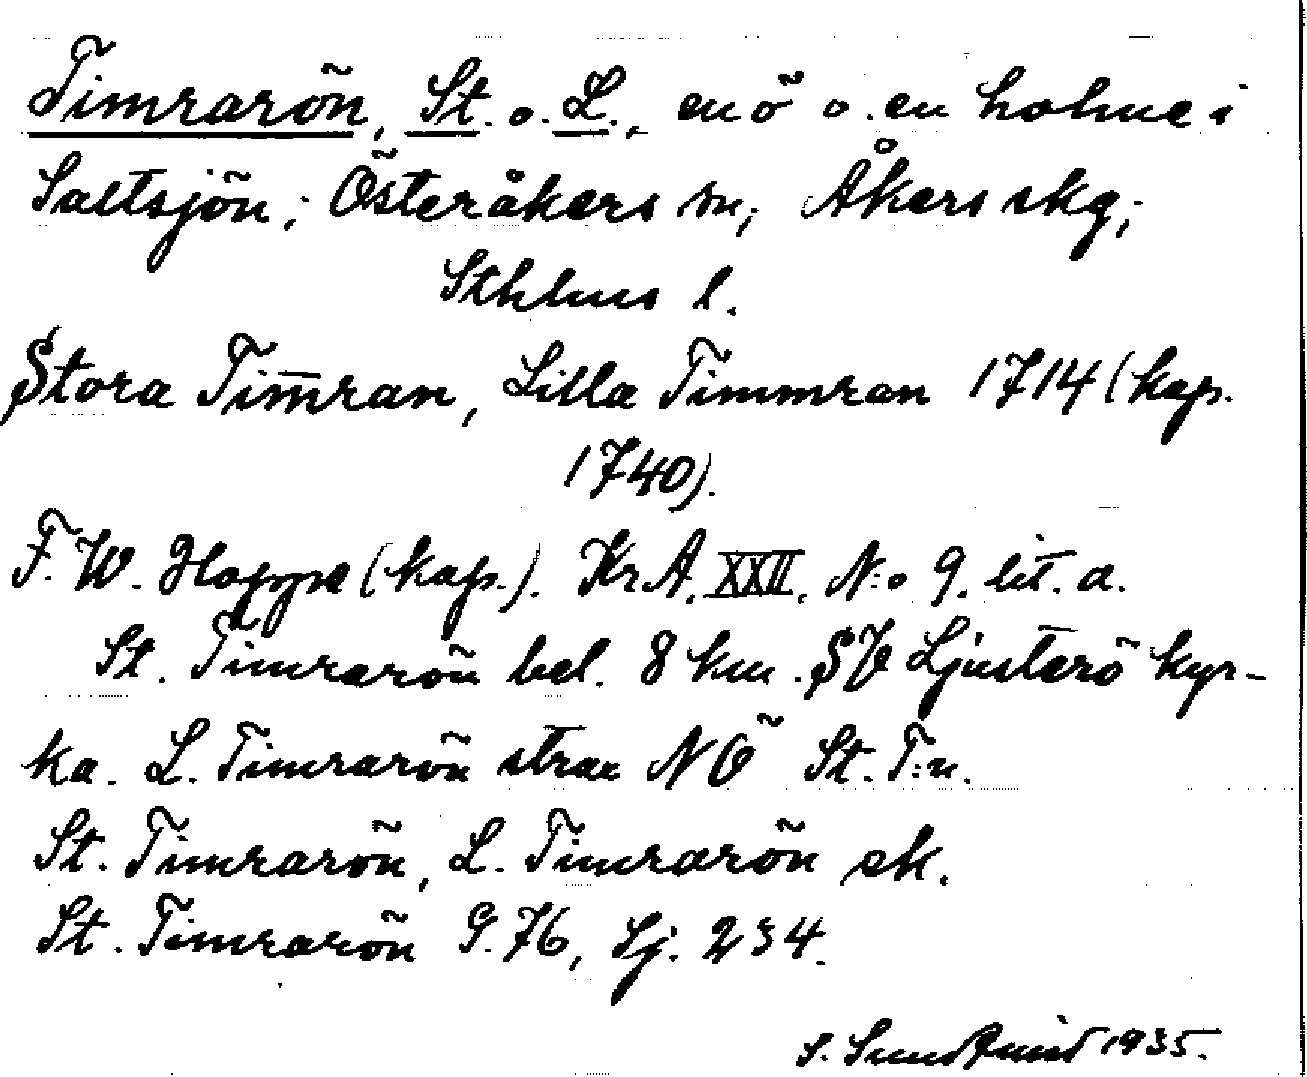 Timrarön, St. o. L., en ö o. en holme i
Saltsjön; Österåkers sn, Åkers skg;
Sthlms l.
Stora Tim̅ran, Lilla Timmran 1714 (kap.
1740).
F. W. Hoppe (kap.). KrA. XXII. N:o 9. lit. a.
St. Timrarön bel. 8 km. SV Ljusterö kyr-
ka. L. Timrarön strax NÖ St. T:n.
St. Timrarön, L. Timrarön ek.
St. Timrarön G. 76, Sj. 234.
S. Sundqvist 1935.